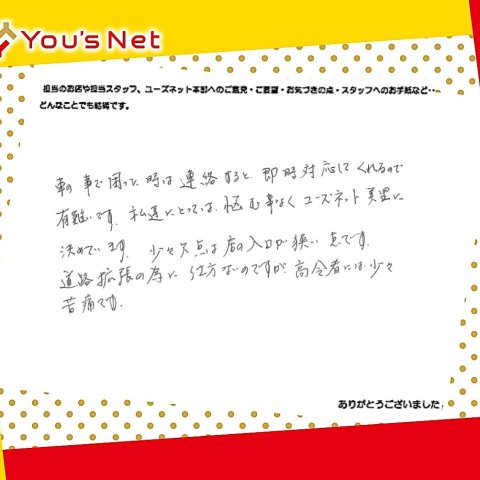 You's Net
担当のお店や担当スタッフ、ユーズネット本部へのご意見・ご要望・お気づきの点・スタッフへのお手紙など・・
どんなことでも結構です。
車の事で困った時は連絡すると即時対応してくれるので
有難いです。私達にとっては悩む事なくユーズネット美里に
決めています。少々欠点は店の入口が狭い点です。
道路拡張の為に仕方ないのですが高令者には少々
苦痛です。
ありがとうございました